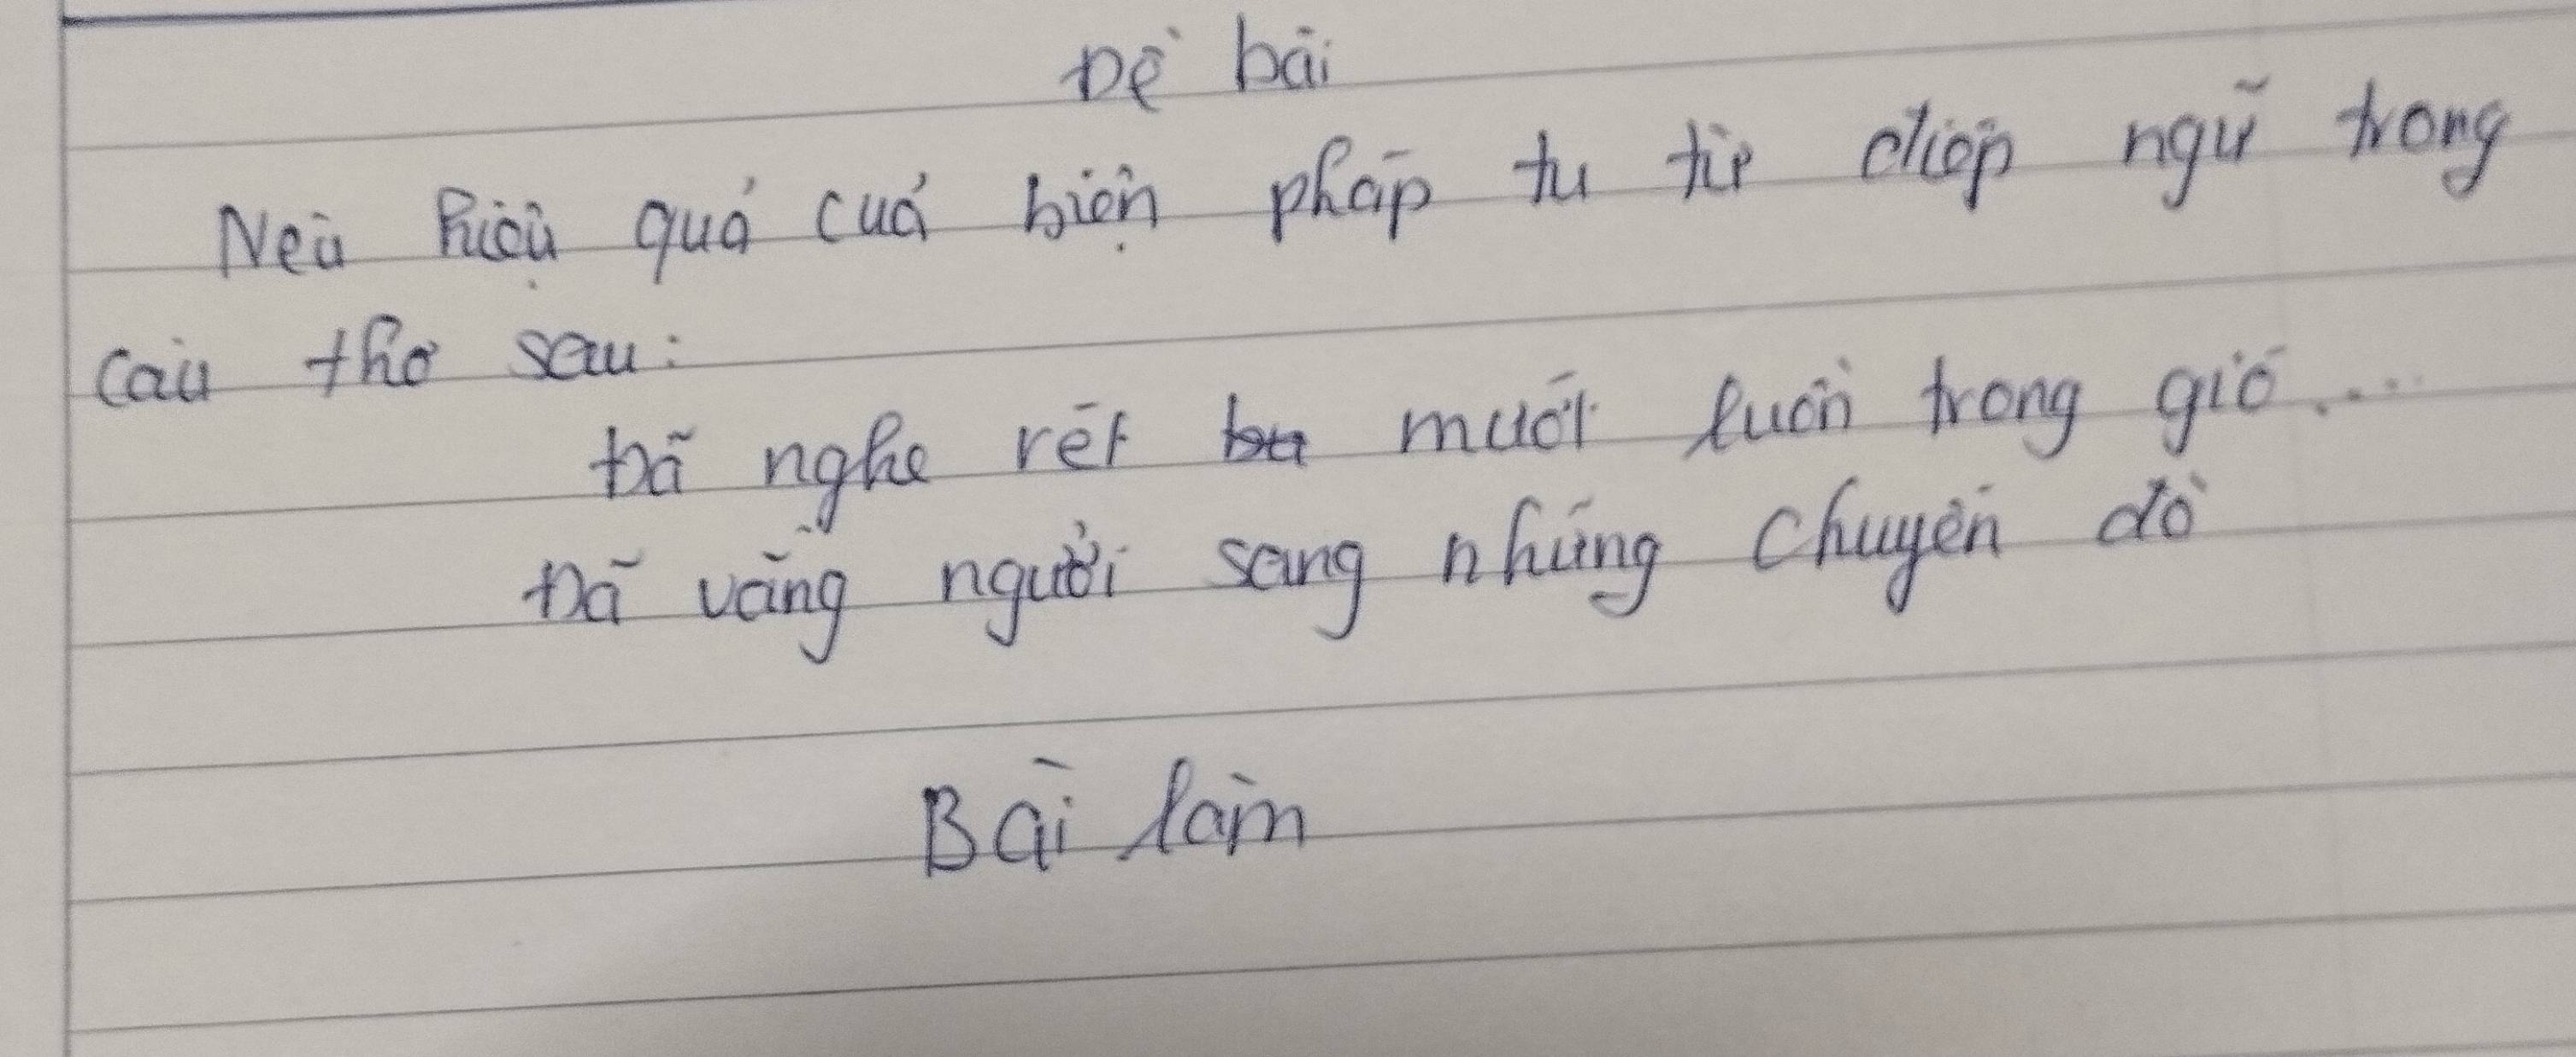 Đề bài
Nêu hiệu quả của biện pháp tu từ điệp ngữ trong
câu thơ sau:
Đã nghe rét mướt luồn trong gió...
Đã vắng người sang những chuyến đò
Bài làm